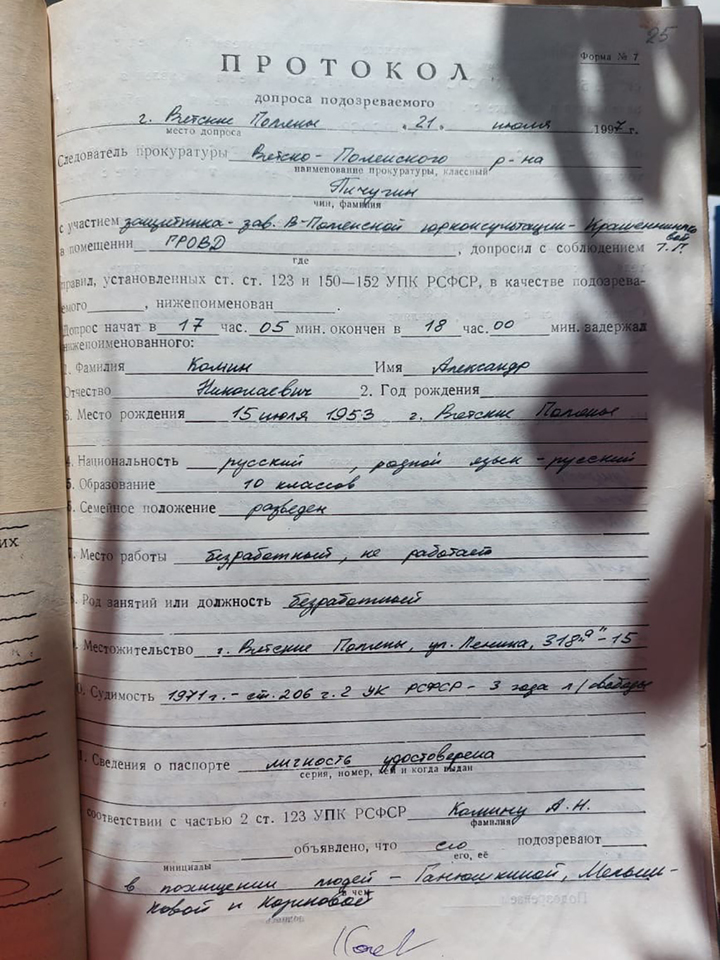 25
Форма № 7
ПРОТОКОЛ
допроса подозреваемого
г. Вятские Поляны „21„ июля 1997 г.
место допроса
Следователь прокуратуры Вятско-Полянского р-на
наименование прокуратуры, классный
Пичугин
чин, фамилия
с участием защитника - зав. В-Полянской юрконсультации - Крашенинниковой Т.Г.
в помещении ГРОВД, допросил с соблюдением
где
правил, установленных ст. ст. 123 и 150—152 УПК РСФСР, в качестве подозрева-
емого , нижепоименован .
Допрос начат в 17 час. 05 мин. окончен в 18 час. 00 мин. задержал
нижепоименованного:
1. Фамилия Комин Имя Александр
Отчество Николаевич 2. Год рождения
3. Место рождения 15 июля 1953 г. Вятские Поляны
4. Национальность русский, родной язык - русский
5. Образование 10 классов
6. Семейное положение разведен
7. Место работы безработный, не работает
8. Род занятий или должность безработный
9. Местожительство г. Вятские Поляны, ул. Ленина, 318 "а" - 15
10. Судимость 1971 г. - ст. 206 ч. 2 УК РСФСР - 3 года л/свободы
их
11. Сведения о паспорте личность удостоверена
серия, номер, кем и когда выдан
соответствии с частью 2 ст. 123 УПК РСФСР Комину А.Н.
фамилия
объявлено, что его подозревают
инициалы его, её
в похищении людей - Ганюшкиной, Мельни-
в чем
ковой и Козиковой